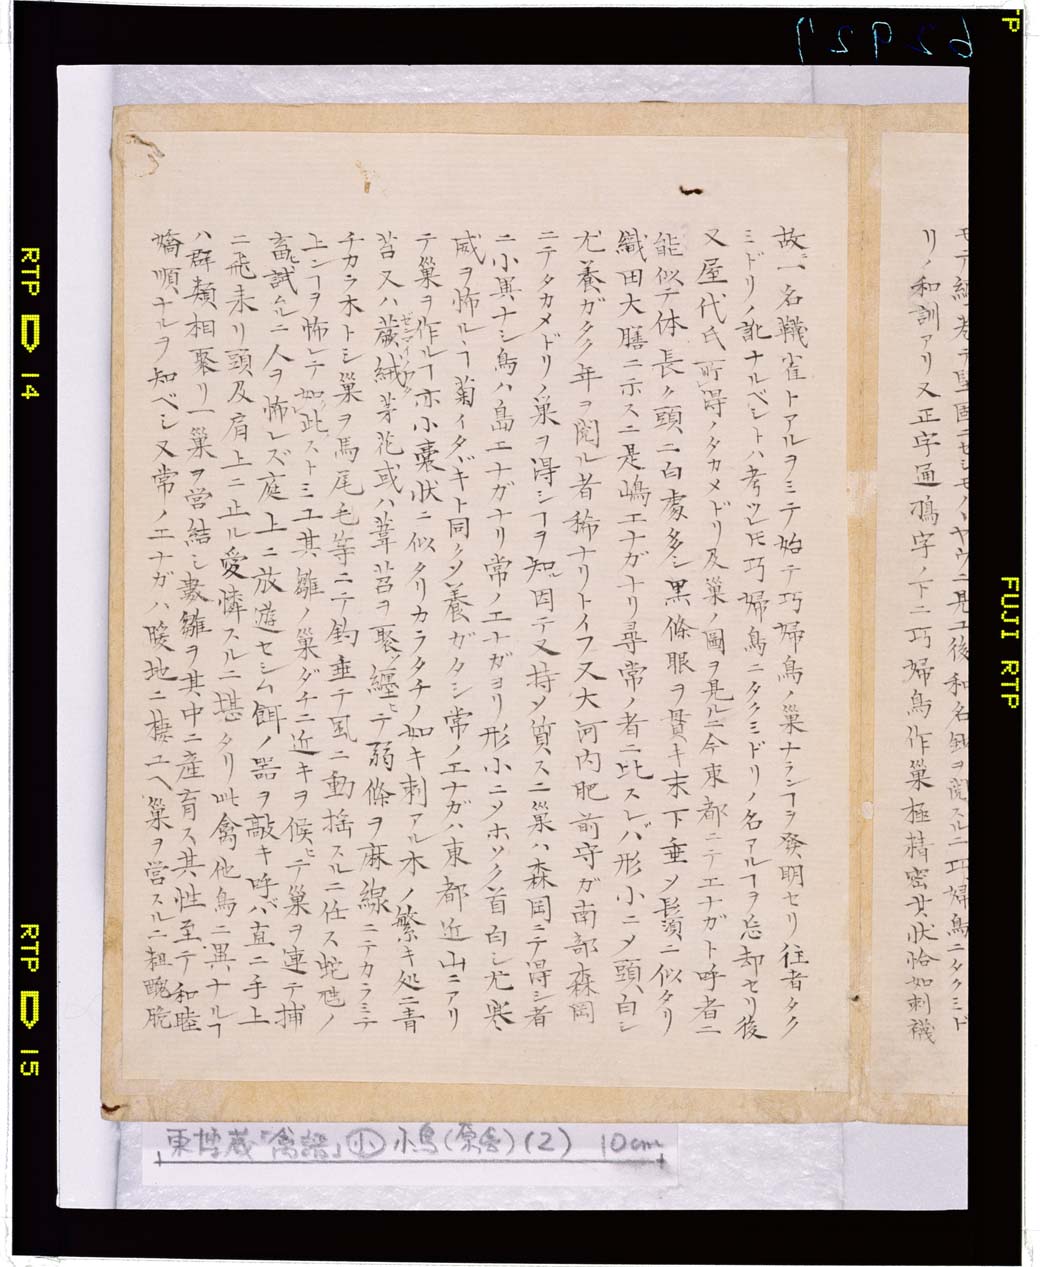 モテ編
リノ和訓アリ又正字通鳭字ノ下ニ巧婦鳥作巣極精密其状恰如刺襪
故ニ一名韈雀トアルヲミテ始テ巧婦鳥ノ巣ナランヿヲ發明セリ往者タク
ミドリノ訛ナルベシトハ考ツレ𪜈巧婦鳥ニタクミドリノ名アルヿヲ忘却セリ後
又屋代氏所得ノタカメドリ及巣ノ圖ヲ見ルニ今東都ニテエナガト呼者ニ
能似テ体長ク頭ニ白處多シ黒條眼ヲ貫キ末下垂〆鬚ニ似タリ
織田大膳ニ示スニ是嶋エナガナリ尋常ノ者ニ比スレバ形小ニ〆頭白シ
尤養ガタク年ヲ閲ル者稀ナリトイフ又大河内肥前守ガ南部森岡
ニテタカメドリノ巣ヲ得シヿヲ知ル因テ又持〆質スニ巣ハ森岡ニテ得シ者
ニ小異ナシ鳥ハ島エナガナリ常ノエナガヨリ形小ニ〆ホソク首白シ尤寒
威ヲ怖ルヿ菊イタヾキト同ク〆養ガタシ常ノエナガハ東都近山ニアリ
テ巣ヲ作ルヿ亦小嚢状ニ似タリカラタチノ如キ刺アル木ノ繁キ処ニ青
苔又ハ蕨絨茅花或ハ葦苕ヲ聚メ纏ヒテ弱條ヲ麻線ニテカラミテ
チカラ木トシ巣ヲ馬尾毛等ニテ釣垂テ風ニ動揺スルニ任ス蛇虺ノ
上ランヿヲ怖レテ如此ストミユ其雛ノ巣ダチニ近キヲ候ヒテ巣ヲ連テ捕
畜試ルニ人ヲ怖レズ庭上ニ放遊セシム餌ノ器ヲ敲キ呼バ直ニ手上
ニ飛来リ頭及肩上ニ止ル愛憐スルニ堪タリ此禽他鳥ニ異ナルヿ
ハ群類相聚リ一巣ヲ営結シ数雛ヲ其中ニ産育ス其性至テ和睦
嬌順ナルヲ知ベシ又常ノエナガハ暖地ニ棲ユヘ巣ヲ営スルニ粗醜脆
東博蔵「禽譜」㊥小鳥(原色)(2) 10cm
62927
RTP 14
RTP 15
FUJI RTP